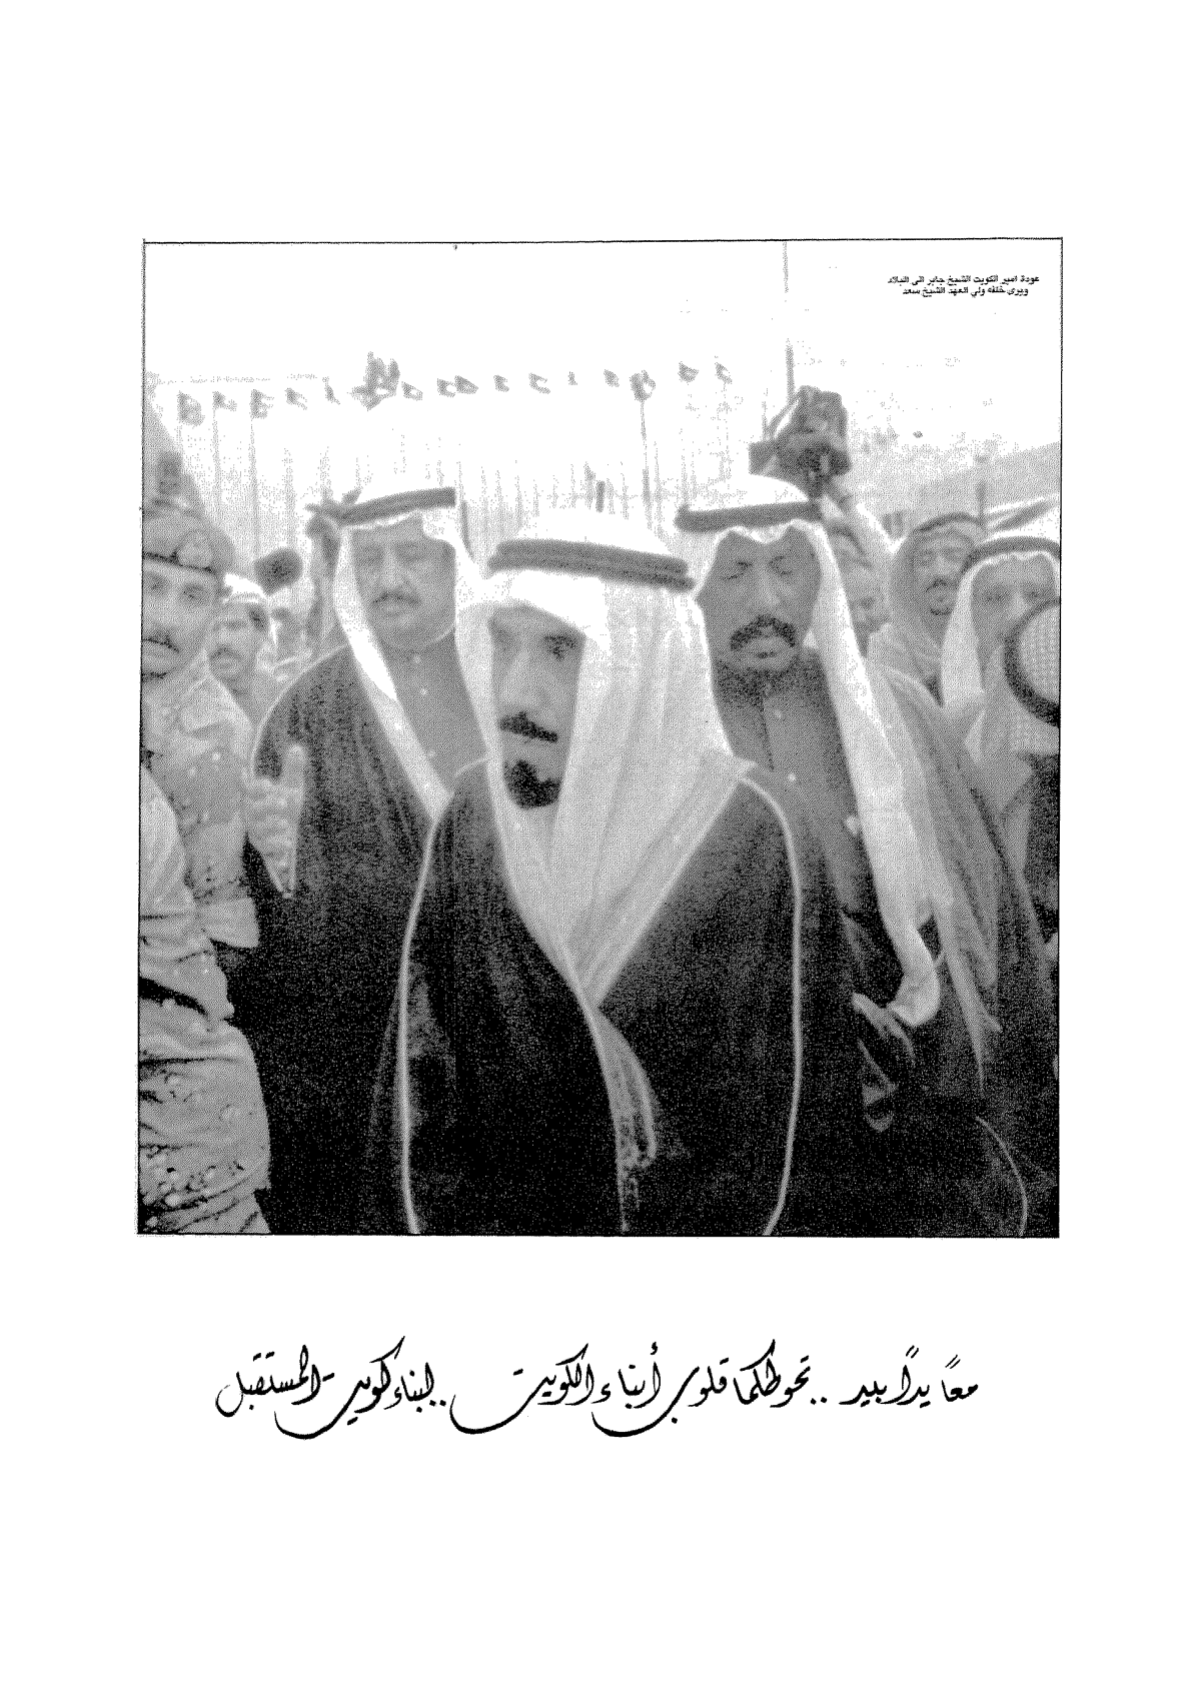 عودة امير الكويت الشيخ جابر الى البلاد
ويرى خلفه ولي العهد الشيخ سعد
معًا يدًا بيد .. تحوطكما قلوب أبناء الكويت .. لبناء كويت المستقبل